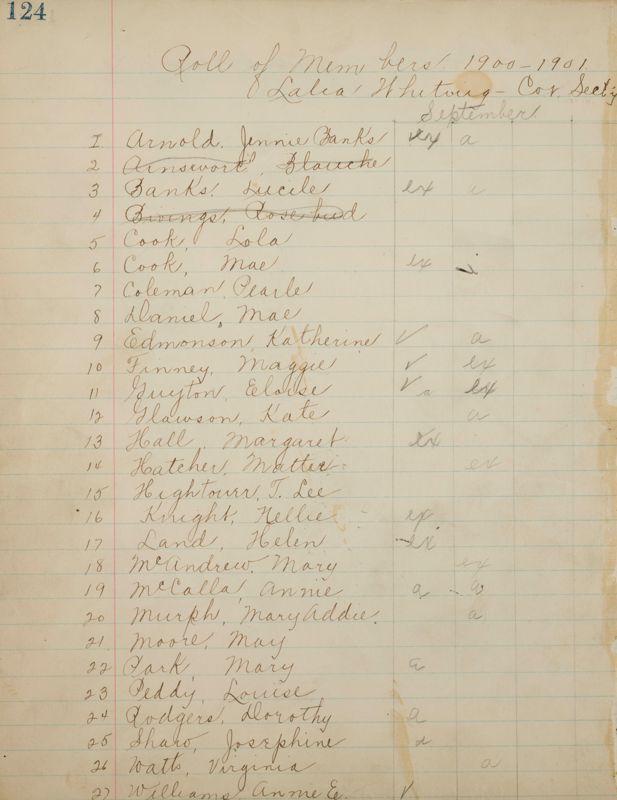 124
Roll of Members 1900-1901.
Lalia Whitwig - Cor Sect'y
September
1 Arnold, Jennie Banks ex a
2 Ainswort, Blanche
3 Banks Lucile ex a
4 Bivings, Rosebud
5 Cook, Lola
6 Cook, Mae ex
7 Coleman, Pearle
8 Daniel, Mae
9 Edmonson, Katherine ✓ a
10 Finney, Maggie ✓ ex
11 Guyton, Eloise ✓ a ex
12 Glawson, Kate a
13 Hall, Margaret ex
14 Hatcher, Mattie ex
15 Hightowr, T. Lee
16 Knight, Nellie ex
17 Land, Helen ex
18 McAndrew, Mary ex
19 McCalla, Annie a a
20 Murph, Mary Addie. a
21. Moore, May
22 Park Mary a
23 Peddy, Louise
24 Rodgers, Dorothy a
25 Shaw, Josephine a
26 Watts, Virginia a
27 Williams Annie E. ✓